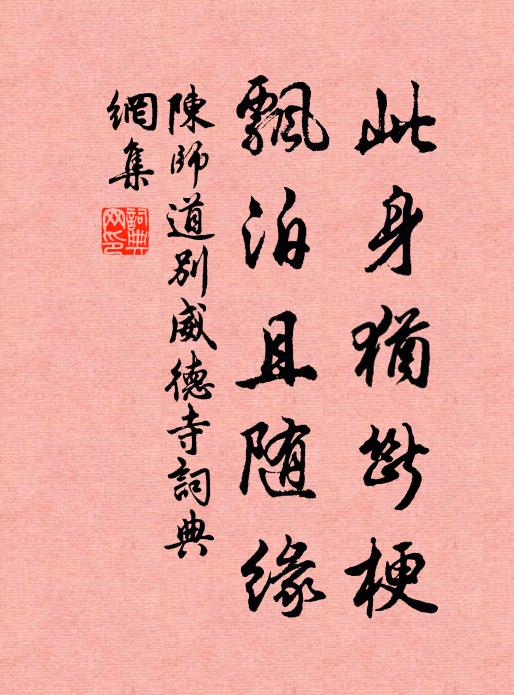 此身猶斷梗
飄泊且随緣
陳師道別威德寺詞典
網集
詞典
网印